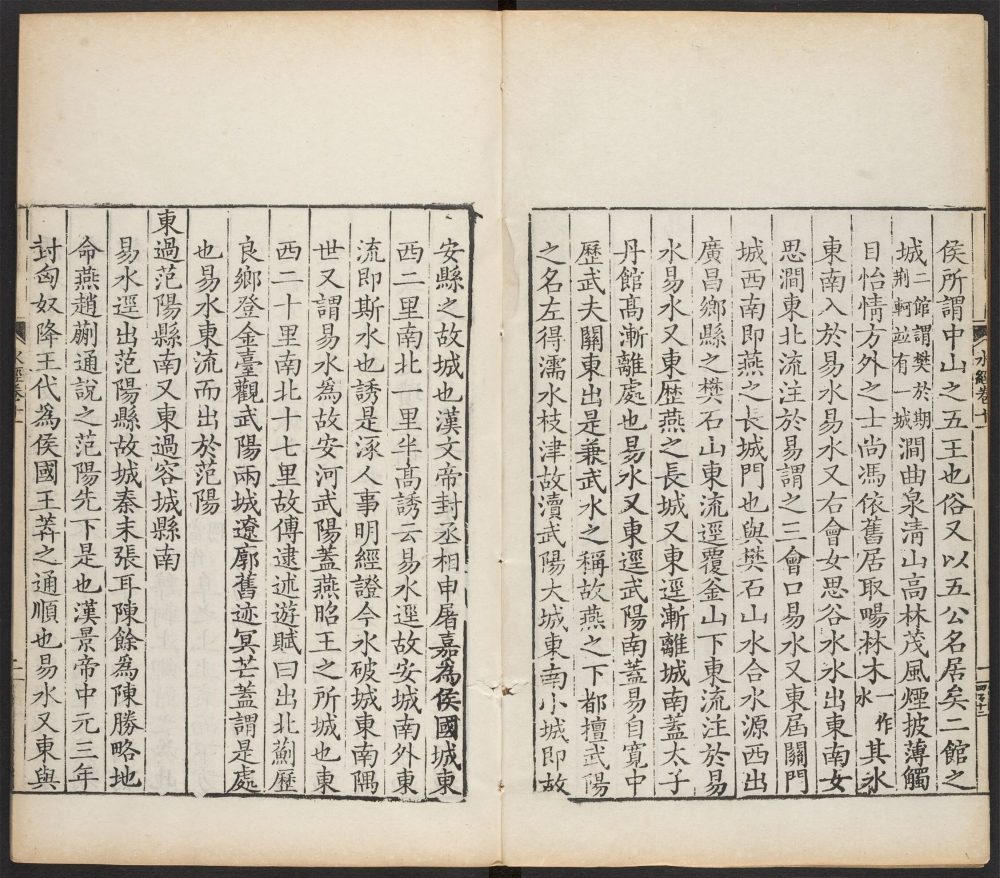 侯所謂中山之五王也俗又以五公名居矣二館之
城二館謂樊於期荆軻並有城澗曲泉清山高林茂風煙披薄觸
目怡情方外之士尚馮依舊居取暢林木一作水其水
東南入於易水易水又右會女思谷水水出東南女
思澗東北流注於易謂之三會口易水又東屆關門
城西南即燕之長城門也與樊石山水合水源西出
廣昌鄉縣之樊石山東流逕覆釜山下東流注於易
水易水又東歷燕之長城又東逕漸離城南蓋太子
丹館髙漸離處也易水又東逕武陽南蓋易自寬中
歷武夫關東出是兼武水之稱故燕之下都擅武陽
之名左得濡水枝津故瀆武陽大城東南小城即故
水經卷十一
安縣之故城也漢文帝封丞相申屠嘉為侯國城東
西二里南北一里半髙誘云易水逕故安城南外東
流即斯水也誘是涿人事明經證今水破城東南隅
世又謂易水為故安河武陽蓋燕昭王之所城也東
西二十里南北十七里故傅逮述遊賦曰出北薊歷
良鄉登金臺觀武陽兩城遼廓舊迹冥芒蓋謂是處
也易水東流而出於范陽
東過范陽縣南又東過容城縣南
易水逕出范陽縣故城秦末張耳陳餘為陳勝略地
命燕趙蒯通說之范陽先下是也漢景帝中元三年
封匈奴降王代為侯國王莽之通順也易水又東與
水經卷十一